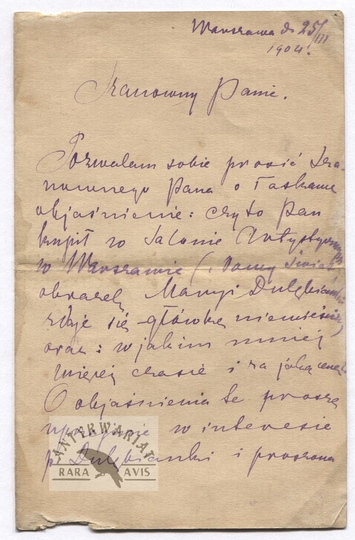 Warszawa d. 25/III
1904.
Szanowny Panie.
Pozwalam sobie prosić Sza-
nownego Pana o łaskawe
objaśnienie: czy to Pan
kupił w Salonie Artystycznym
w Warszawie (Nowy Świat)
obrazek Maryi Dulębianki
zdaje się główkę niewieścią
oraz: w jakim mniej
więcej czasie i za jaką cenę.
O objaśnienia te proszę
w interesie
p. Dulębianki i proszona
ANTYKWARIAT
RARA AVIS